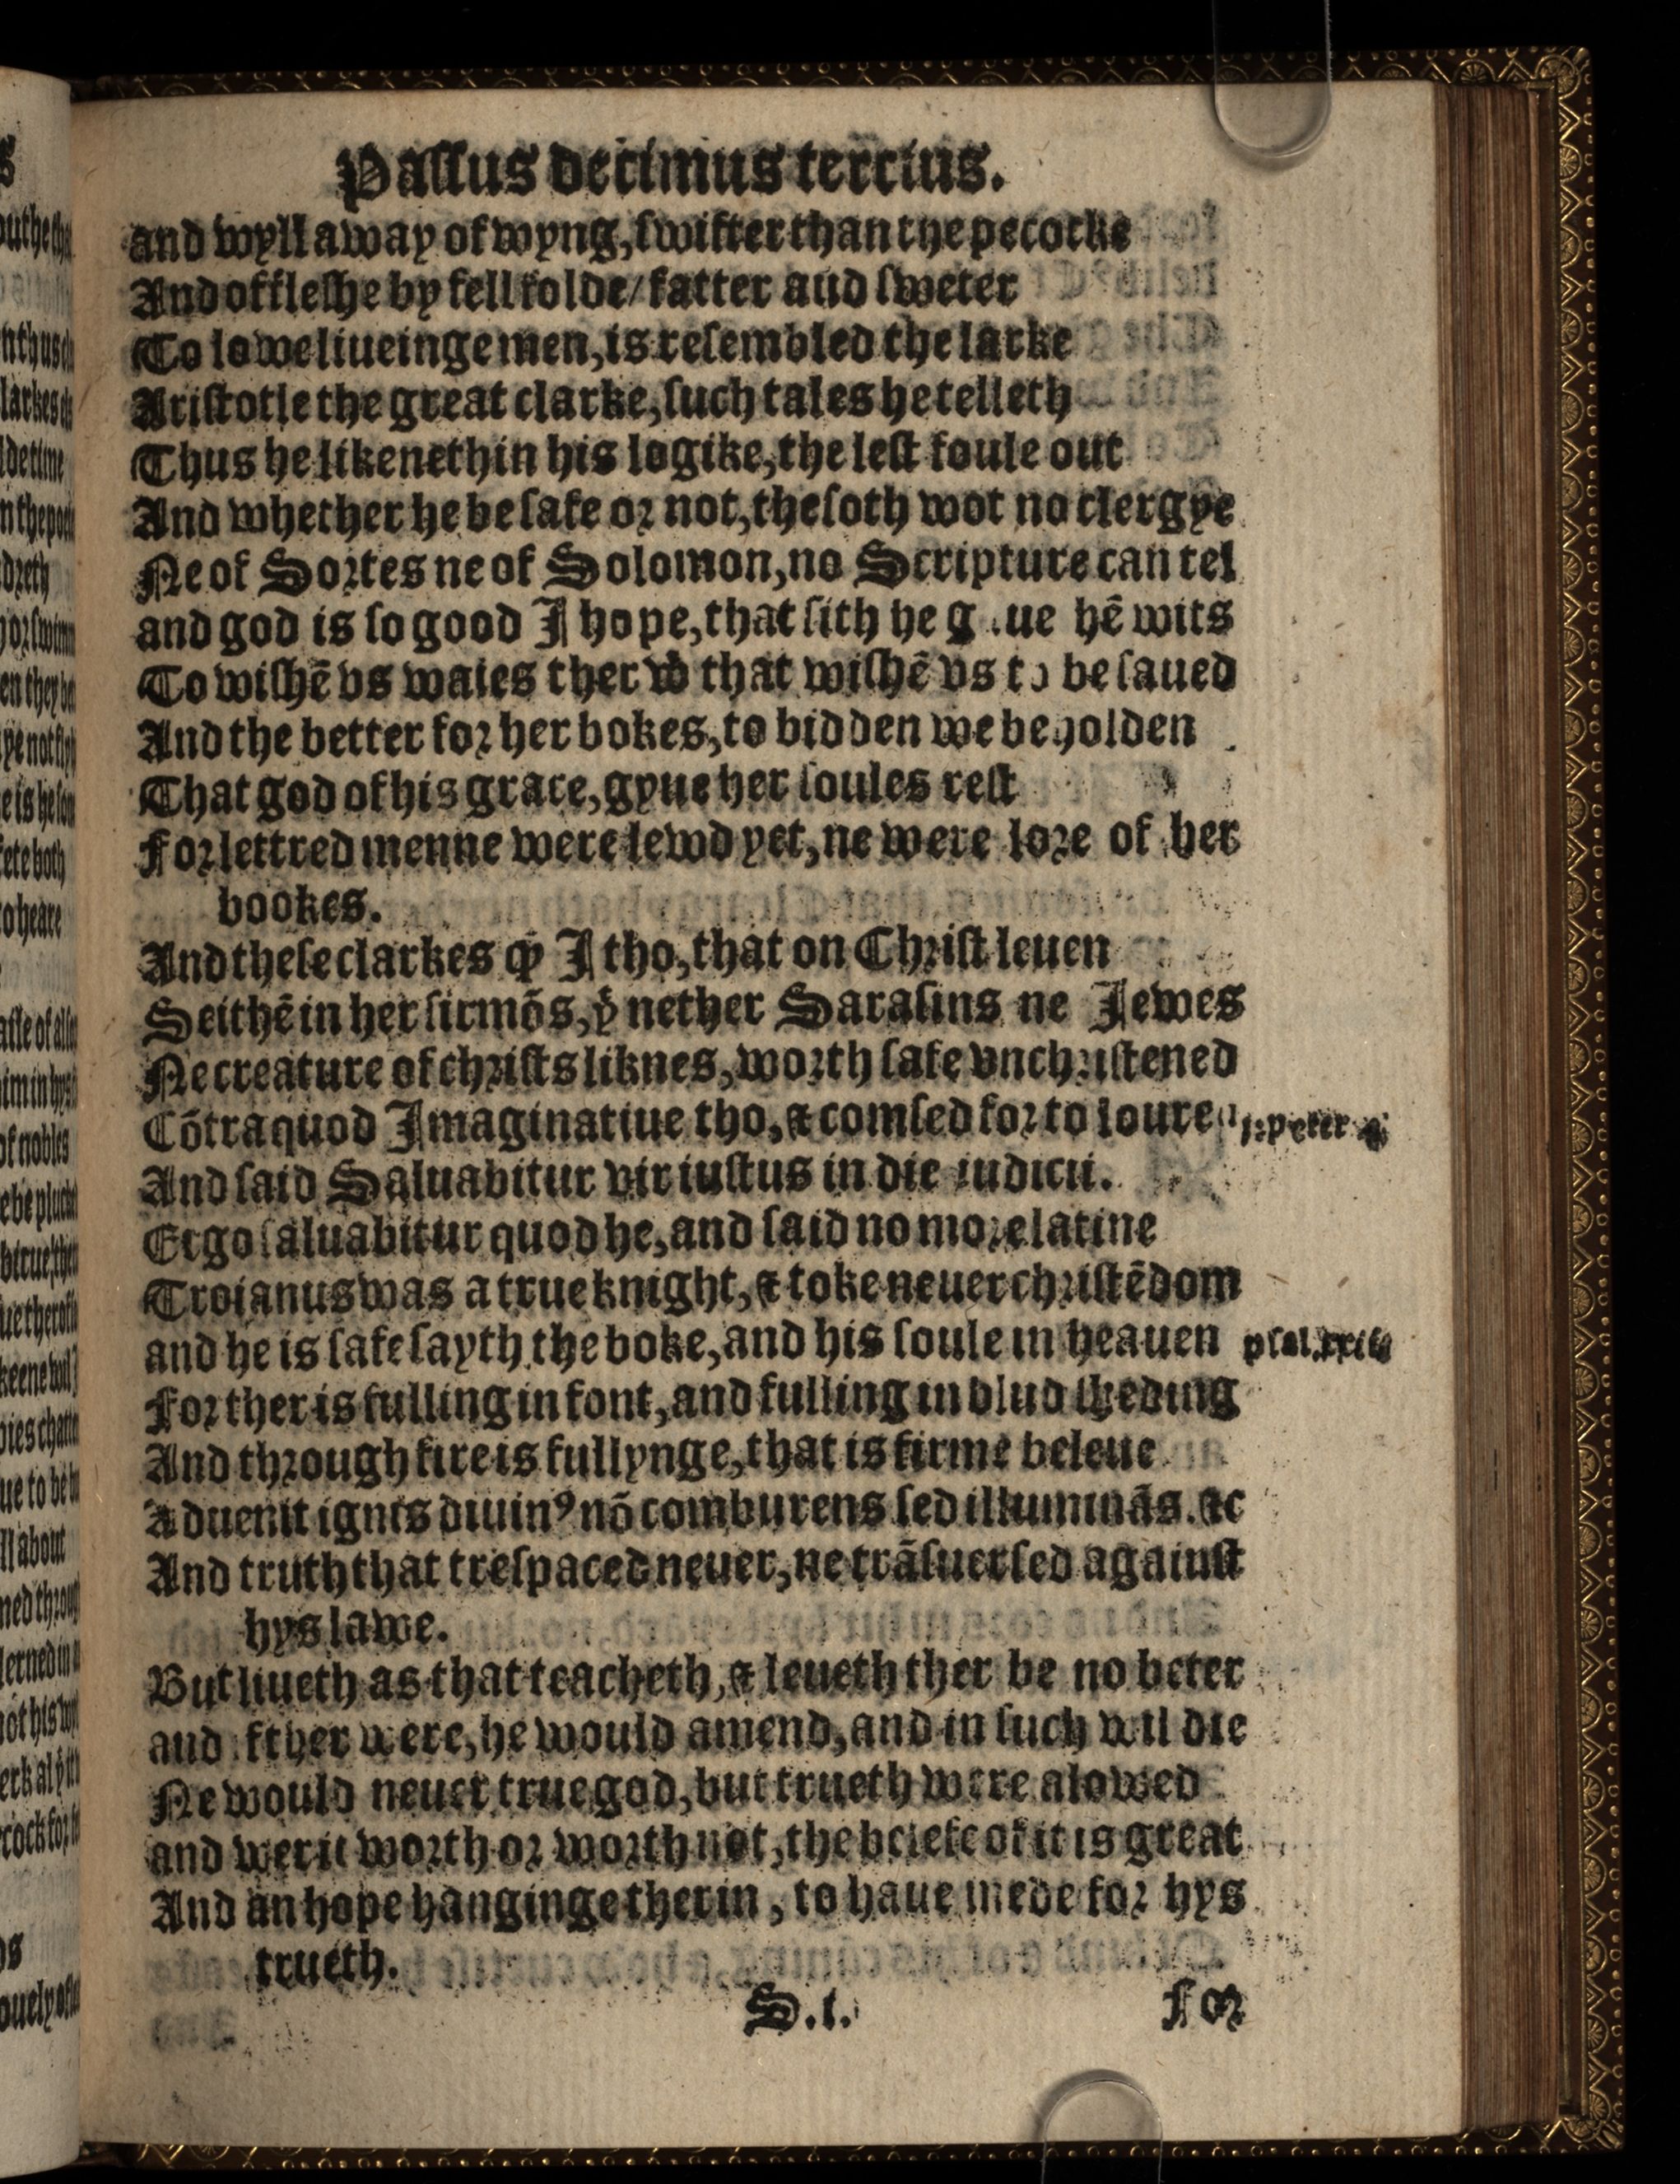 Passus decimus tercius.
and wyll away of wyng, swifter than the pecocke
And of fleshe by fell folde/ fatter aud sweter
To lowe liueinge men, is resembled the larke
Aristotle the great clarke, such tales he telleth
Thus he likeneth in his logike, the lest foule out
And whether he be safe or not, the soth wot no clergye
Ne of Sortes ne of Solomon, no Scripture can tel
and god is so good I hope, that sith he g ue hē wits
To wishē vs waies ther wͭ that wishē vs to be saued
And the better for her bokes, to bidden we beholden
That god of his grace, gyue her soules rest
For lettred menne were lewd yet, ne were lore of her
bookes.
And these clarkes qͩ I tho, that on Christ leuen
Seithē in her sirmōs, yͭ nether Sarasins ne Iewes
Ne creature of christs liknes, worth safe vnchristened
Cōtra quod Imaginatiue tho, & comsed for to loure
i. peter
And said Saluabitur vir iustus in die iudicii.
Ergo saluabitur quod he, and said no more latine
Troianus was a true knight, & toke neuer christēdom
and he is safe sayth the boke, and his soule in heauen
psal.
For ther is fulling in font, and fulling in blud sheding
And through fire is fullynge, that is firme beleue
Aduenit ignis diuinꝰ nō comburens sed illuminās. &c
And truth that trespaced neuer, ne trāsuersed against
hys lawe.
But liueth as that teacheth, & leueth ther be no beter
aud if ther were, he would amend, and in such wil die
Ne would neuer true god, but trueth were alowed
and wer it worth or worth not, the beliefe of it is great
And an hope hanginge therin, to haue mede for hys
trueth.
S.i.
For